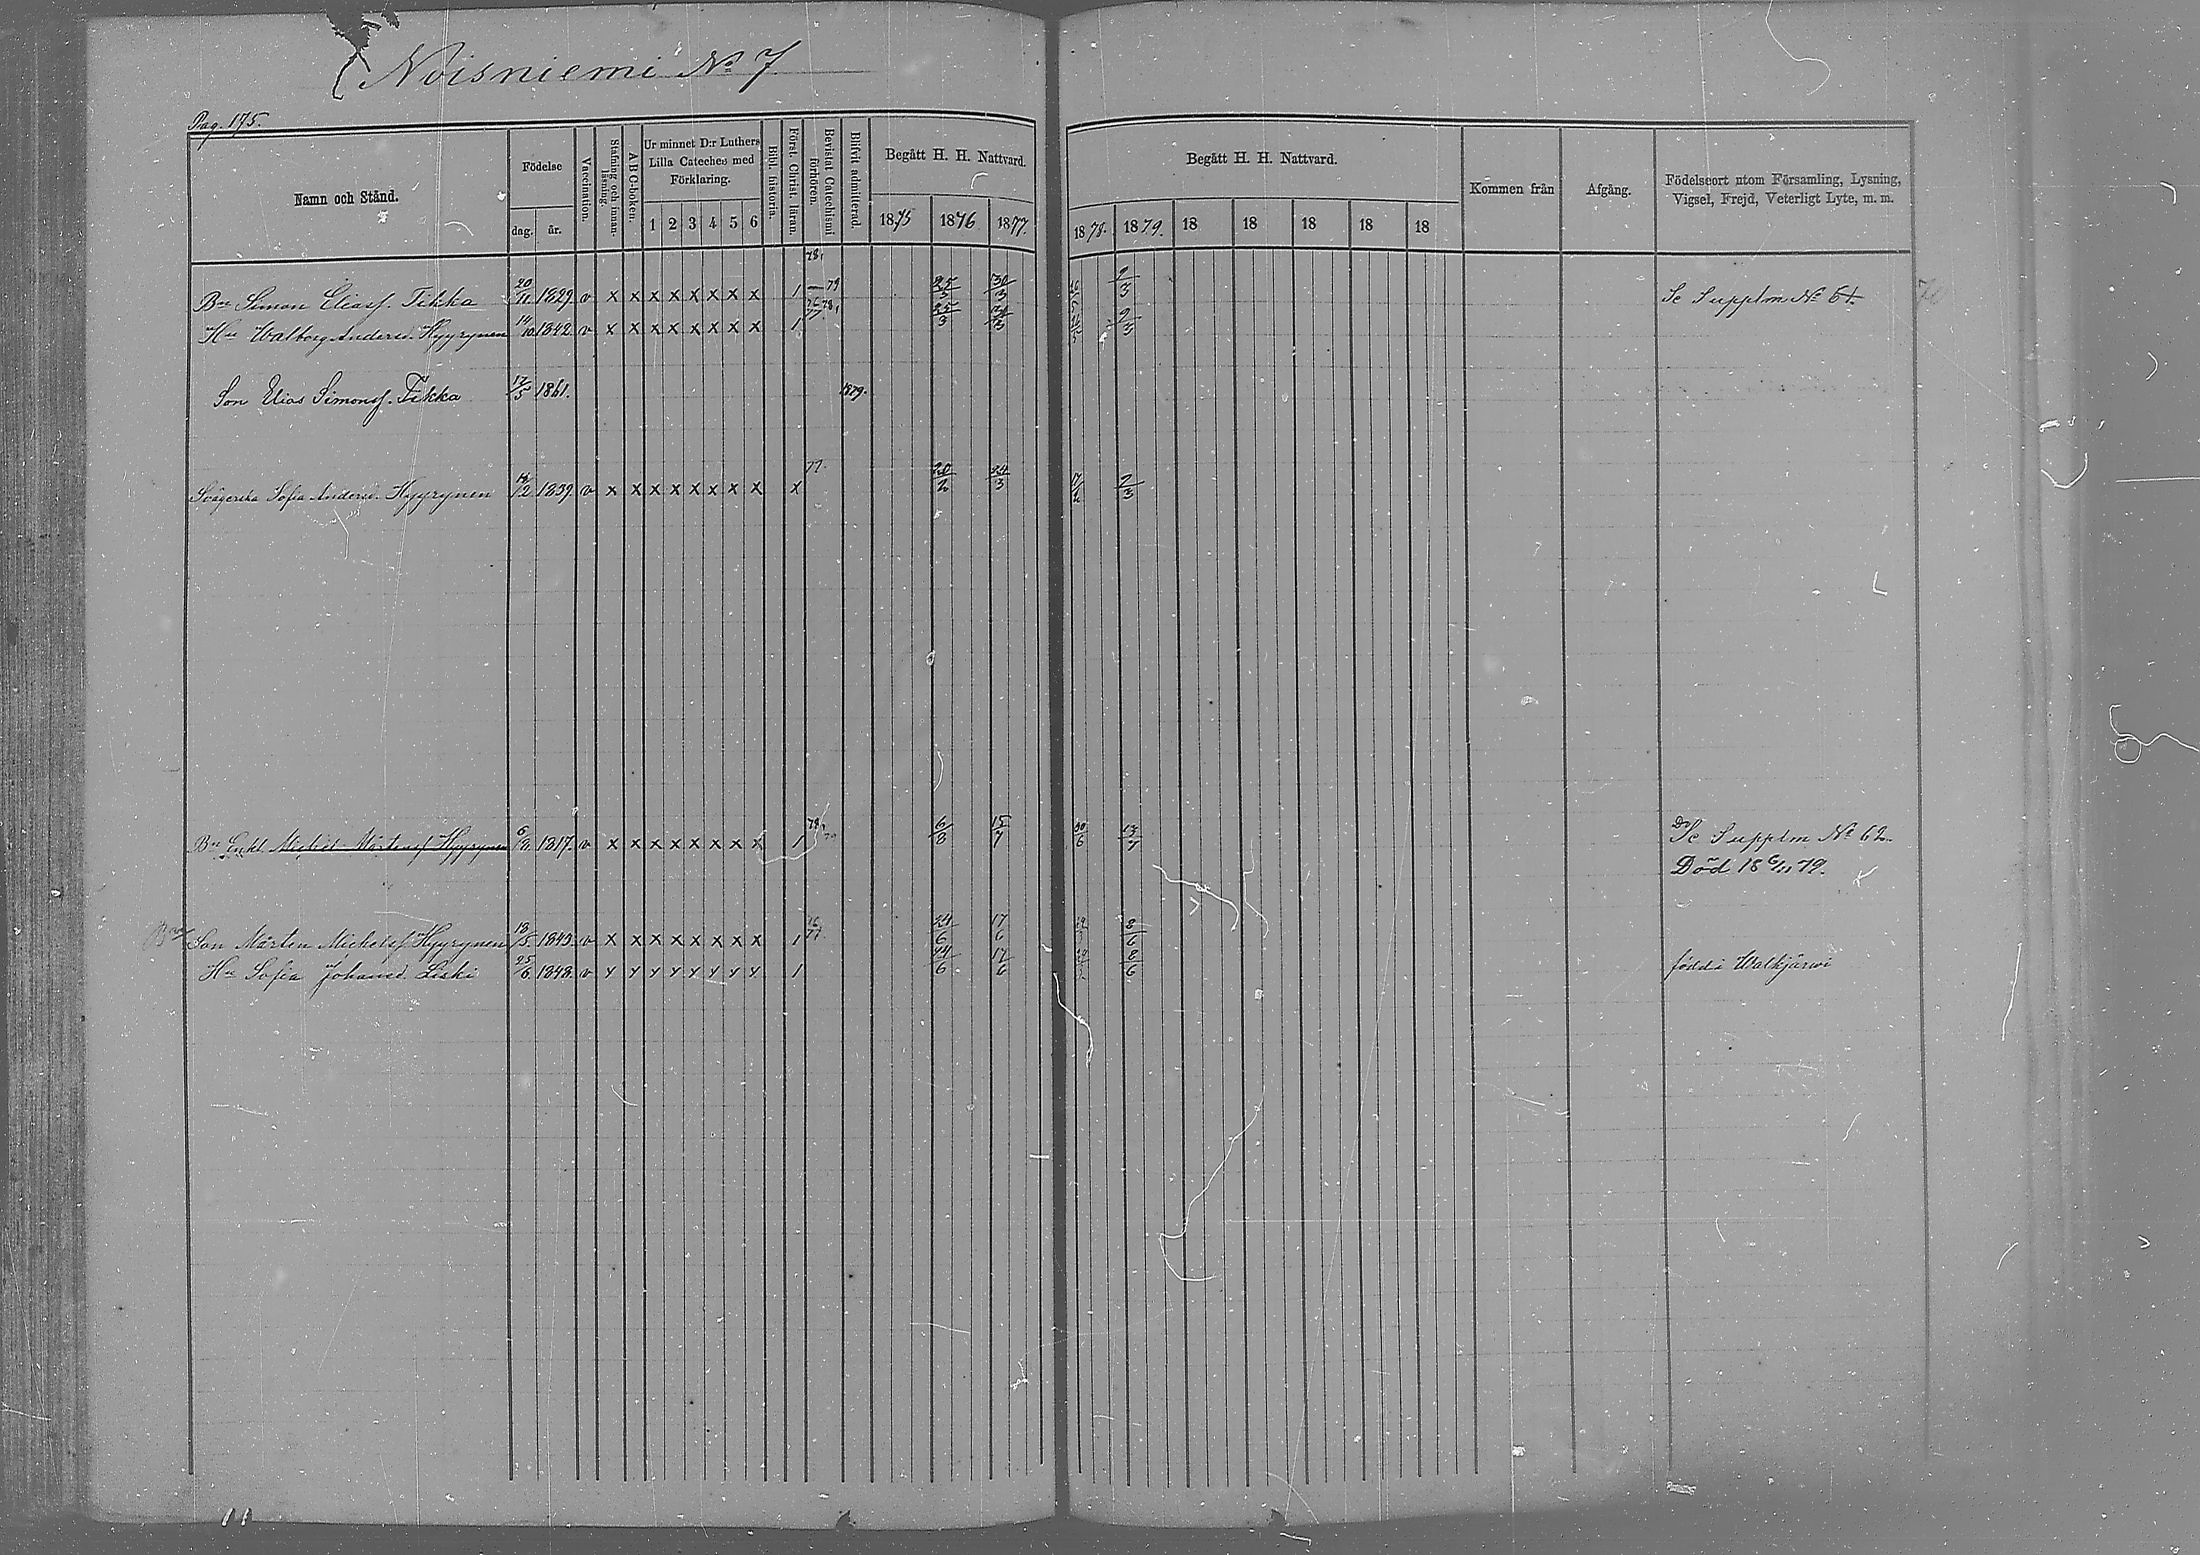 Noisniemi No 7
Pag. 175.
Namn och Stånd.
Födelse
dag. år.
Vaccination.
Stafning och innan-läsning.
A B C-boken.
Ur minnet D:r Luthers
Lilla Cateches med
Förklaring.
1 2 3 4 5 6
Bibl. historia.
Först. Christ. läran.
Bevistat Catechismi förhören.
Blifvit admitterad.
Begått H. H. Nattvard.
1875 1876 1877.
Begått H. H. Nattvard.
1878. 1879. 18 18 18 18 18
Kommen från
Afgång.
Födelseort utom Församling, Lysning,
Vigsel, Frejd, Veterligt Lyte, m. m.
78,
Bn Simon Eliass. Tikka 20/11 1829. v x x x x x x x x 1 79 25/3 30/3 9/3 Se Supplm No 61.
Hu Walborg Andersd. Hyyrynen 14/10 1842. v x x x x x x x x 1 77. 78, 25/3 30/3 9/3
Son Elias Simonss. Tikka 17/5 1861. 1879.
Svägerska Sofia Andersd. Hyyrynen 14/12 1839. v x x x x x x x x x 77. 20/2 24/3 9/3
Bn Enkl. Michel Mårtenss Hyyrynen 6/9. 1817. v x x x x x x x x 1 78, 6/8 15/7 30/6 13/7 Se Supplm No 62.
Död 18 6/11 79.
Son Mårten Michelss. Hyyrynen 13/5 1843. v x x x x x x x x 1 76 77 24/6 17/6 8/6
Hu Sofia Johansd. Liski 25/6. 1848. v y y y y y y y y 1 24/6 17/6 8/6 född i Walkjärwi